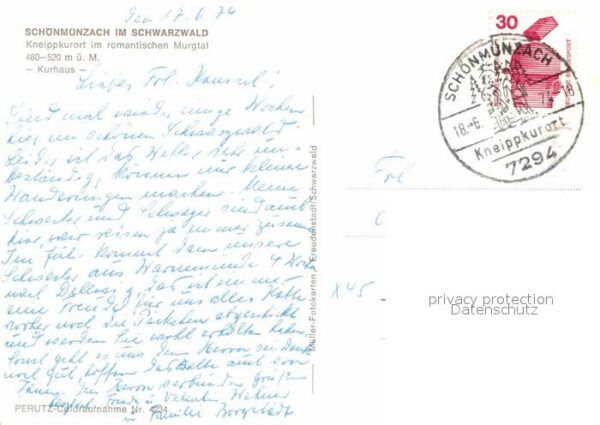 Den 17.6.74
SCHÖNMÜNZACH IM SCHWARZWALD
Kneippkurort im romantischen Murgtal
480–520 m ü. M.
– Kurhaus –
Liebes Frl.
Sind mal wieder einige Wochen
hier im schönen Schwarzwald.
Leider ist das Wetter sehr un-
beständig, können nur kleine
Wanderungen machen. Meine
Schwester und Schwager sind auch
hier, wir reisen ja immer zusammen
Im Juli kommt dann unsere
Schwester aus Warnemünde 4 Woch
nach, das ist immer
eine Freude für uns alle. Hatte
vorher noch die Päckchen abgeschickt
und werden Sie wohl erhalten haben.
Sonst geht es uns dem Herrn sei Dank
noch gut, hoffen dasselbe auch von
Ihnen. Im Herrn verbunden grüßen
herzlich und Valentin, Werner
u. Familie Borgstädt
PERUTZ-Coloraufnahme Nr. 4234
Müller-Fotokarten Freudenstadt/Schwarzwald
30
DEUTSCHE BUNDESPOST
SCHÖNMÜNZACH
18.-6. 74 - 18
Kneippkurort
7294
Frl
x 45
privacy protection
Datenschutz